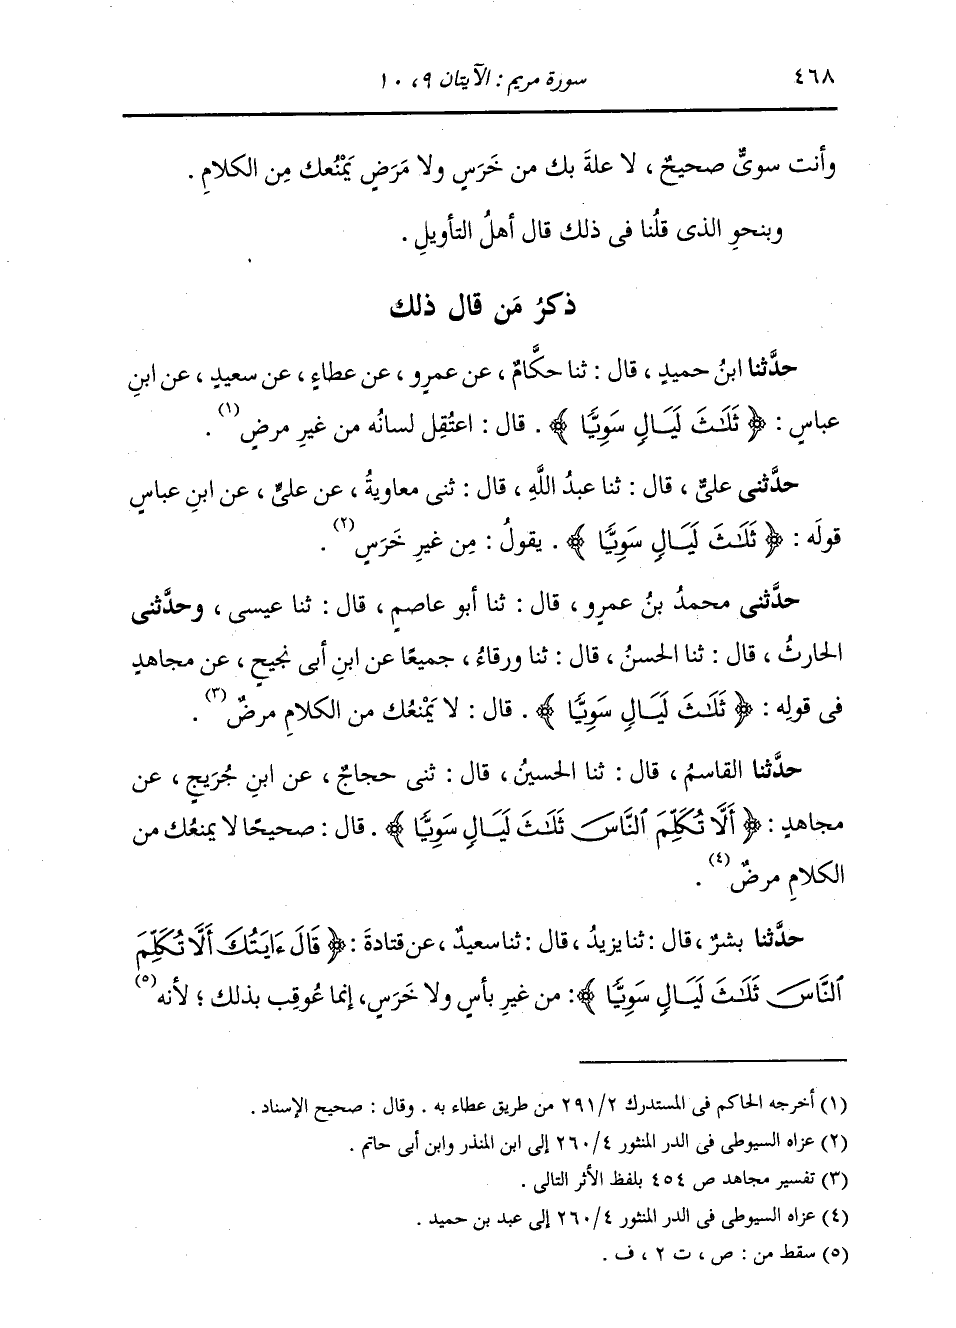 ٤٦٨ سورة مريم : الآيتان ٩، ١٠
وأنت سوىٌّ صحيحٌ ، لا علةَ بك من خَرَسٍ ولا مَرَضٍ يَمْنَعُك مِن الكلامِ .
وبنحوِ الذى قلْنا فى ذلك قال أهلُ التأويلِ .
ذكرُ مَن قال ذلك
حدَّثنا ابنُ حميدٍ ، قال : ثنا حكَّامٌ ، عن عمرٍو ، عن عطاءٍ ، عن سعيدٍ ، عن ابنِ
عباسٍ : ﴿ ثَلَٰثَ لَيَالٍ سَوِيًّا ﴾ . قال : اعتُقِل لسانُه من غيرِ مرضٍ (١) .
حدَّثنى علىٌّ ، قال : ثنا عبدُ اللَّهِ ، قال : ثنى معاويةُ ، عن علىٍّ ، عن ابنِ عباسٍ
قولَه : ﴿ ثَلَٰثَ لَيَالٍ سَوِيًّا ﴾ . يقولُ : مِن غيرِ خَرَسٍ (٢) .
حدَّثنى محمدُ بنُ عمرٍو ، قال : ثنا أبو عاصمٍ ، قال : ثنا عيسى ، وحدَّثنى
الحارثُ ، قال : ثنا الحسنُ ، قال : ثنا ورقاءُ ، جميعًا عن ابنِ أبى نجيحٍ ، عن مجاهدٍ
فى قولِه : ﴿ ثَلَٰثَ لَيَالٍ سَوِيًّا ﴾ . قال : لا يَمْنَعُك من الكلامِ مرضٌ (٣) .
حدَّثنا القاسمُ ، قال : ثنا الحسينُ ، قال : ثنى حجاجٌ ، عن ابنِ جُرَيجٍ ، عن
مجاهدٍ : ﴿ أَلَّا تُكَلِّمَ ٱلنَّاسَ ثَلَٰثَ لَيَالٍ سَوِيًّا ﴾ . قال : صحيحًا لا يمنعُك من
الكلامِ مرضٌ (٤) .
حدَّثنا بشرٌ ، قال : ثنا يزيدُ ، قال : ثنا سعيدٌ ، عن قتادةَ : ﴿ قَالَ ءَايَتُكَ أَلَّا تُكَلِّمَ
ٱلنَّاسَ ثَلَٰثَ لَيَالٍ سَوِيًّا ﴾: من غيرِ بأسٍ ولا خَرَسٍ، إنما عُوقِب بذلك ؛ لأنه (٥)
(١) أخرجه الحاكم فى المستدرك ٢٩١/٢ من طريق عطاء به . وقال : صحيح الإسناد .
(٢) عزاه السيوطى فى الدر المنثور ٢٦٠/٤ إلى ابن المنذر وابن أبى حاتم .
(٣) تفسير مجاهد ص ٤٥٤ بلفظ الأثر التالى .
(٤) عزاه السيوطى فى الدر المنثور ٢٦٠/٤ إلى عبد بن حميد .
(٥) سقط من : ص ، ت ٢ ، ف .